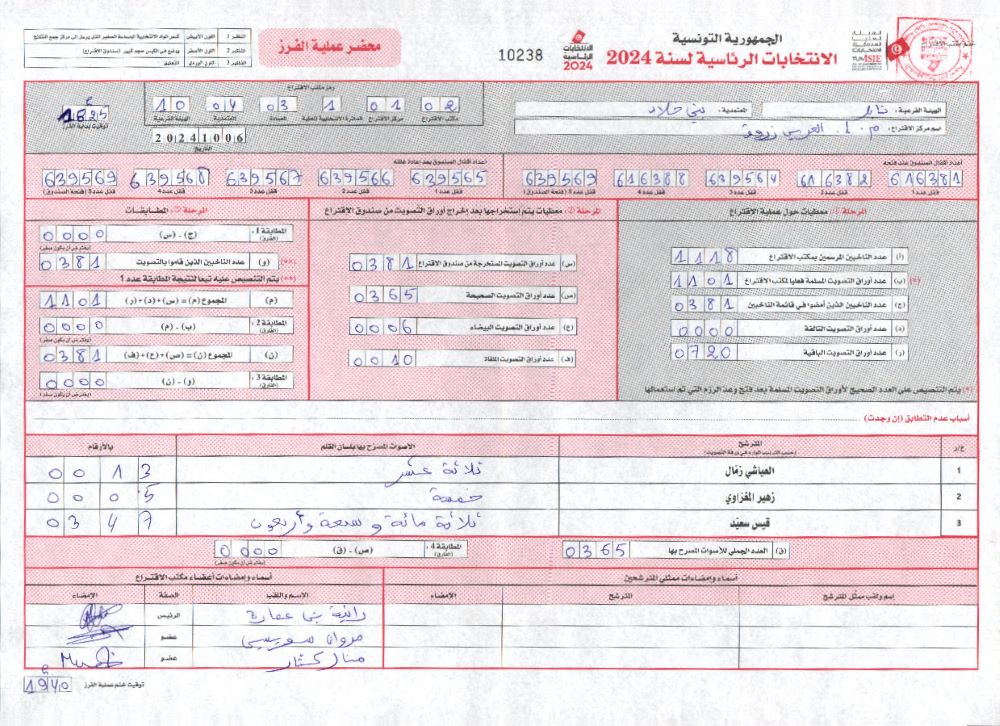 الجمهورية التونسية
الانتخابات الرئاسية لسنة 2024
10238
محضر عملية الفرز
النظير 1 اللون الأبيض
النظير 2 اللون الأصفر يوضع في الكيس مجد كبير (صندوق الاقتراع)
النظير 3 اللون الوردي التعليق
الهيئة الفرعية: نابل
المعتمدية: بني خلاد
اسم مركز الاقتراع: م. ا. العربي زروق
رمز مكتب الاقتراع
02 01 1 03 04 10
مكتب الاقتراع مركز الاقتراع الدائرة الانتخابية المحلية العمادة المعتمدية الهيئة الفرعية
1825
توقيت بداية الفرز
20241006
التاريخ
أعداد أقفال الصندوق عند فتحه
616381 616382 639564 616388 639569
قفل عدد 1 قفل عدد 2 قفل عدد 3 قفل عدد 4 قفل عدد 5 (فتحة الصندوق)
أعداد أقفال الصندوق بعد إعادة غلقه
639565 639566 639567 639568 639569
قفل عدد 1 قفل عدد 2 قفل عدد 3 قفل عدد 4 قفل عدد 5 (فتحة الصندوق)
المرحلة ①: معطيات حول عملية الاقتراع
(أ) عدد الناخبين المرسمين بمكتب الاقتراع 1118
(*) (ب) عدد أوراق التصويت المسلمة فعليا لمكتب الاقتراع 1101
(ج) عدد الناخبين الذين أمضوا في قائمة الناخبين 0381
(د) عدد أوراق التصويت التالفة 0000
(ر) عدد أوراق التصويت الباقية 0720
(*) يتم التنصيص على العدد الصحيح لأوراق التصويت المسلمة بعد فتح وعد الرزم التي تم استعمالها
المرحلة ②: معطيات يتم إستخراجها بعد إخراج أوراق التصويت من صندوق الاقتراع
(س) عدد أوراق التصويت المستخرجة من صندوق الاقتراع 0381
(ص) عدد أوراق التصويت الصحيحة 0365
(ع) عدد أوراق التصويت البيضاء 0006
(ف) عدد أوراق التصويت الملغاة 0010
المرحلة ③: المطابقات
المطابقة 1: (الفارق) (ج) - (س) 0000
(يفترض أن يكون صفر)
(**) (و) عدد الناخبين الذين قاموا بالتصويت 0381
(**) يتم التنصيص عليه تبعا لنتيجة المطابقة عدد 1
(م) المجموع (م) = (س)+(د)+(ر) 1101
المطابقة 2: (الفارق) (ب) - (م) 0000
(يفترض أن يكون صفر)
(ن) المجموع (ن) = (ص)+(ع)+(ف) 0381
المطابقة 3: (الفارق) (و) - (ن) 0000
(يفترض أن يكون صفر)
أسباب عدم التطابق (إن وجدت)
ع/ر المترشح الأصوات المصرح بها بلسان القلم بالأرقام
(حسب الترتيب الوارد في ورقة التصويت)
1 العياشي زمّال ثلاثة عشر 0013
2 زهير المغزاوي خمسة 0005
3 قيس سعيّد ثلاثة مائة وسبعة وأربعون 0347
(ق) العدد الجملي للأصوات المصرح بها 0365
المطابقة 4: (الفارق) (ص) - (ق) 0000
(يفترض أن يكون صفر)
أسماء وإمضاءات ممثلي المترشحين
إسم ولقب ممثل المترشح المترشح الإمضاء
أسماء وإمضاءات أعضاء مكتب الاقتراع
الإسم واللقب الصفة الإمضاء
رانية بني عمارة الرئيس
مروان سويسي عضو
منال عضو
توقيت ختم عملية الفرز 1940